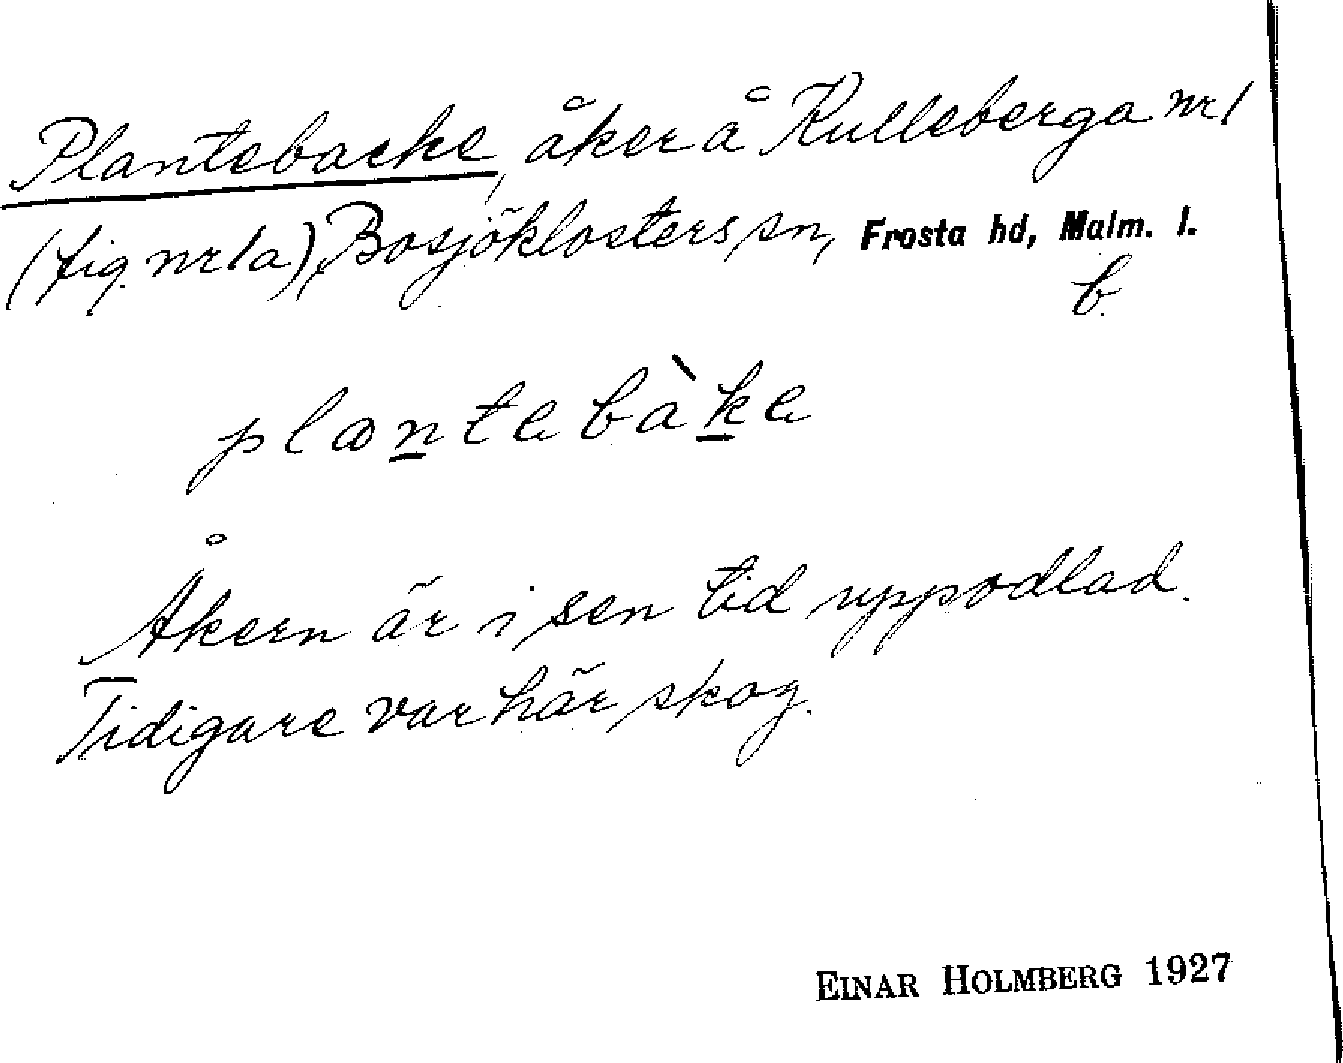 Plantebacke, åker å Kulleberga nr 1
(fig. nr 1a), Bosjöklosters sn, Frosta hd, Malm. l.
b.
plantebàke
Åkern är i sen tid uppodlad.
Tidigare var här skog.
EINAR HOLMBERG 1927